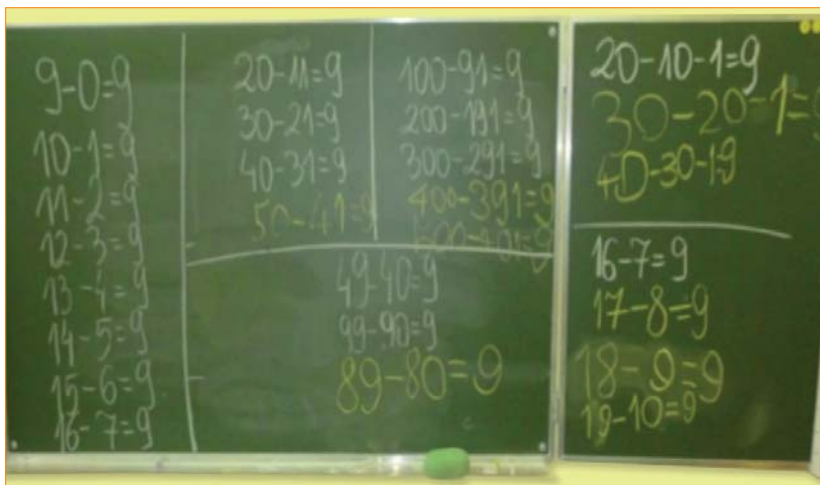 9-0=9
10-1=9
11-2=9
12-3=9
13-4=9
14-5=9
15-6=9
16-7=9
20-11=9
30-21=9
40-31=9
50-41=9
100-91=9
200-191=9
300-291=9
400-391=9
49-40=9
99-90=9
89-80=9
20-10-1=9
30-20-1=9
40-30-1=9
16-7=9
17-8=9
18-9=9
19-10=9